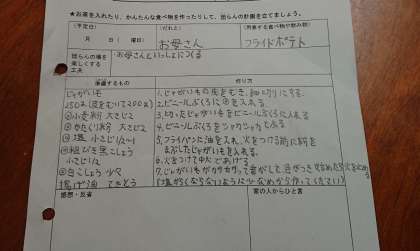 ★お茶を入れたり、かんたんな食べ物を作ったりして、団らんの計画を立てましょう。
(予定日)
月 日 ( 曜日)
(だれと)
お母さん
(用意する食べ物や飲み物)
フライドポテト
団らんの場を楽しくする工夫
・お母さんといっしょにつくる
準備するもの
作り方
じゃがいも
250g(皮をむいて200g)
小麦粉 大さじ2
かたくり粉 大さじ2
塩 小さじ1/2〜
粗びき黒こしょう
小さじ1/2
白こしょう 少々
揚げ油 てきとう
1.じゃがいもの皮をむき、細切りにする。
2.ビニールぶくろに を入れる。
3.切ったじゃがいもをビニールぶくろに入れる
4.ビニールぶくろをシャカシャカふる
5.フライパンに油を入れ、火をつける前に粉を
まぶしたじゃがいもを入れる。
6.火をつけて中火であげる
7.じゃがいもがカサカサって音がして、色がつき始めたら火を止める
(塩からくならないように少なめから作ってください)
感想・反省
家の人からひと言